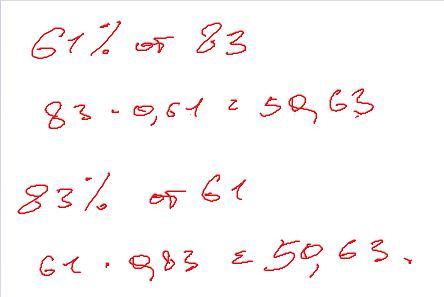 61% от 83
83 · 0,61 = 50,63
83% от 61
61 · 0,83 = 50,63.